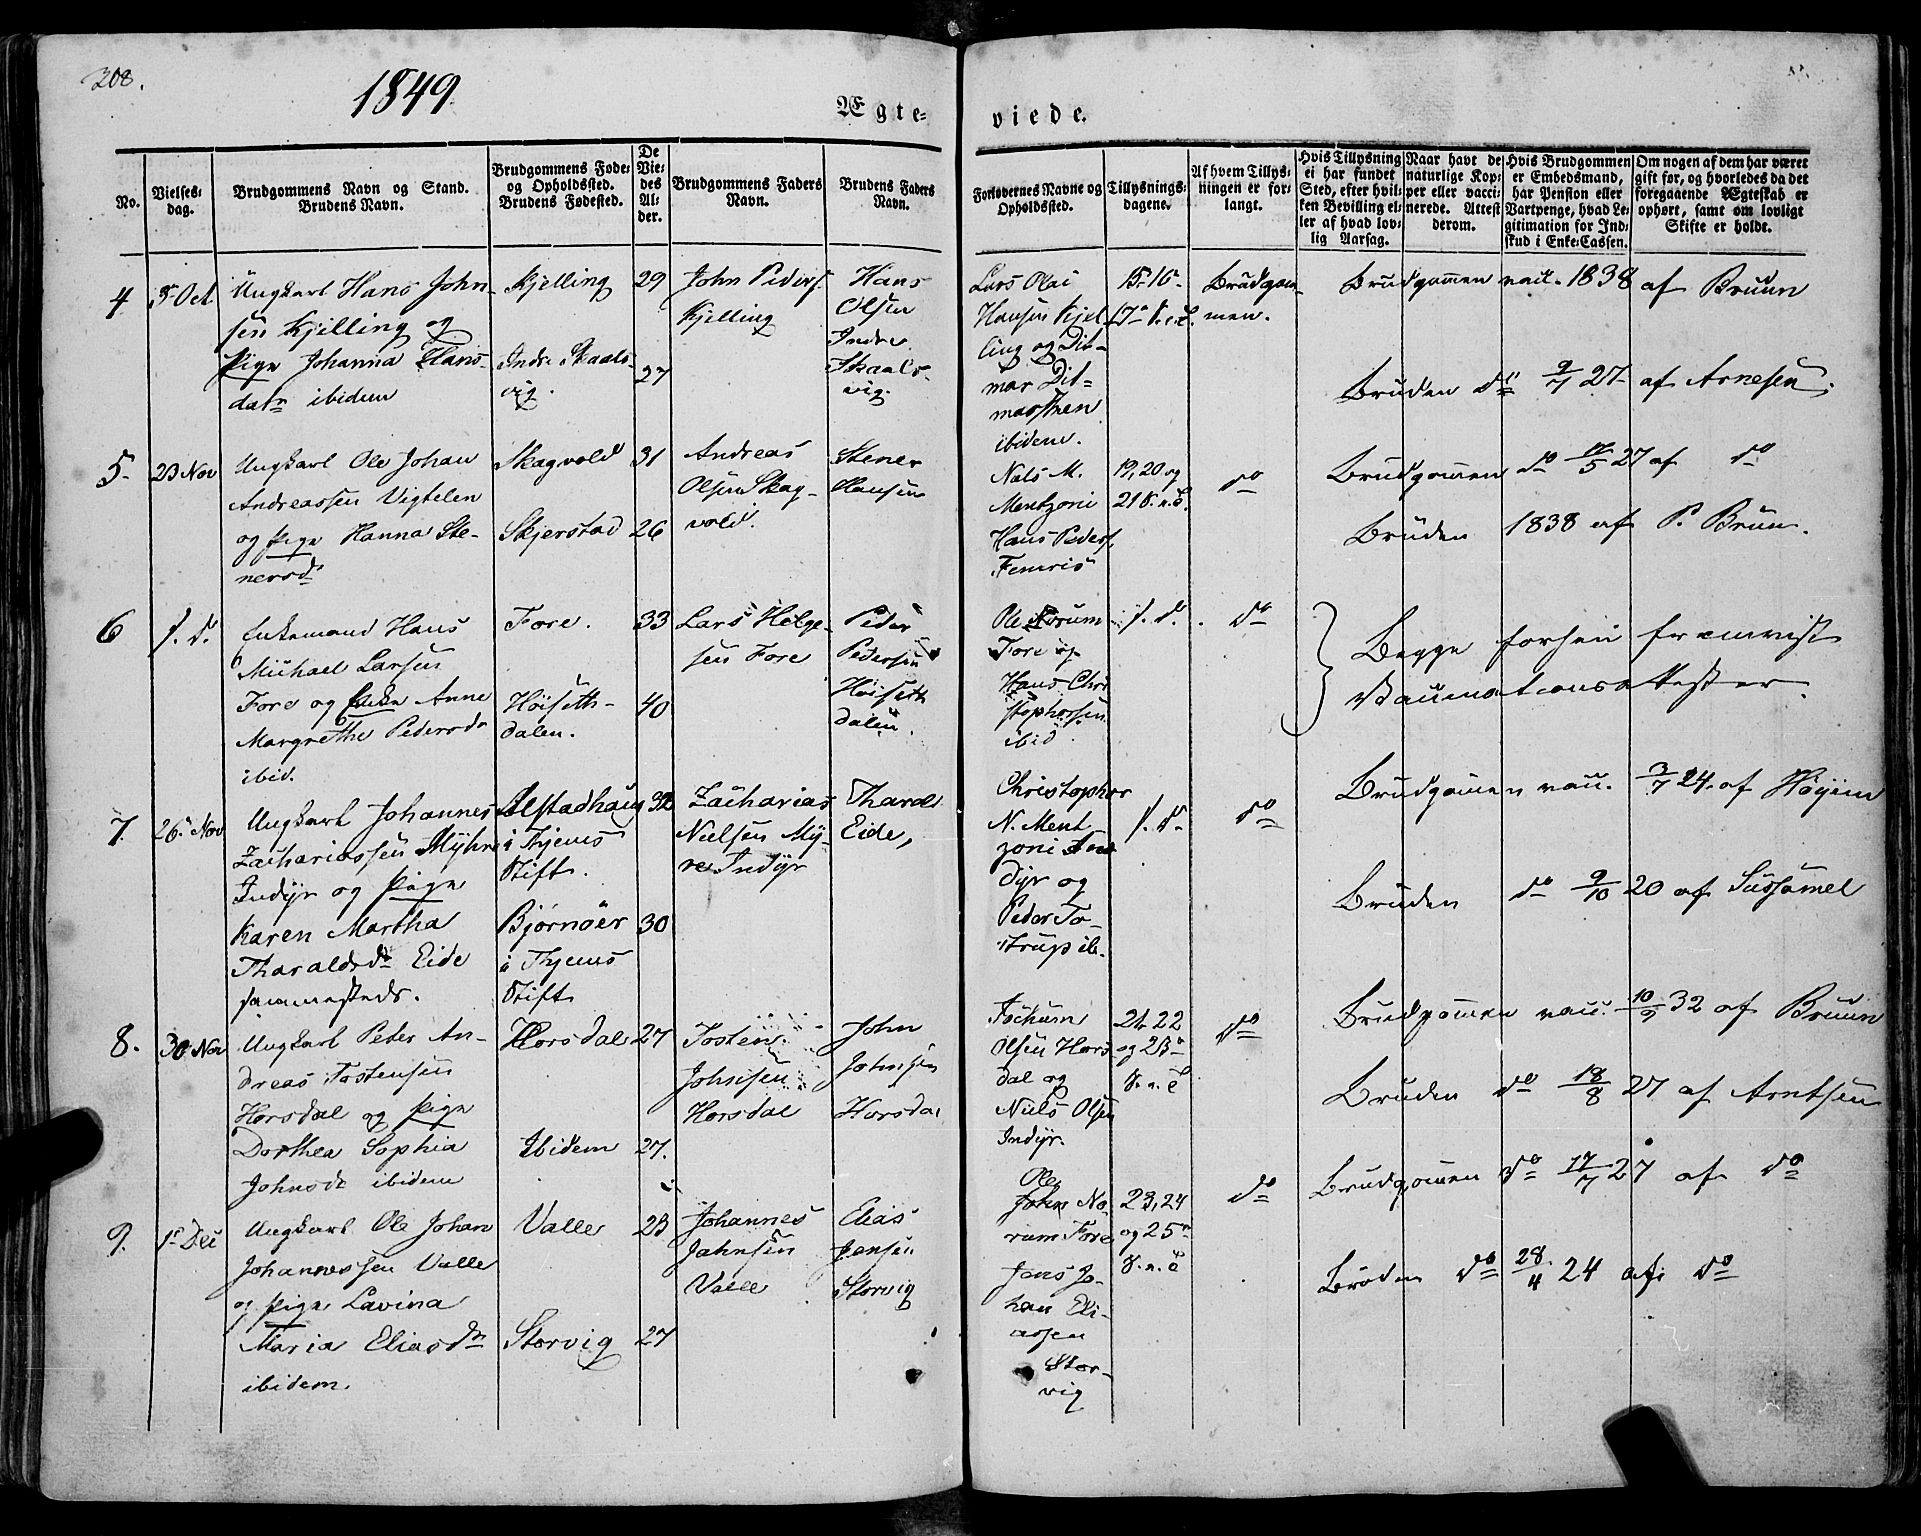 208.
1849
Ægte-
viede.
No.
Vielses-
dag.
Brudgommens Navn og Stand.
Brudens Navn.
Brudgommens Føde-
og Opholdssted.
Brudens Fødested.
De
Vie-
des
Al-
der.
Brudgommens Faders
Navn.
Brudens Faders
Navn.
Forlovernes Navne og
Opholdssted.
Tillysnings-
dagene.
Af hvem Tillys-
ningen er for-
langt.
Hvis Tillysning
ei har fundet
Sted, efter hvil-
ken Bevilling el-
ler af hvad lov-
lig Aarsag.
Naar havt de
naturlige Kop-
per eller vacci-
nerede. Attest
derom.
Hvis Brudgommen
er Embedsmand,
har Pension eller
Vartpenge, hvad Le-
gitimation for Ind-
skud i Enke-Cassen.
Om nogen af dem har været
gift før, og hvorledes da det
foregaaende Ægteskab er
ophørt, samt om lovligt
Skifte er holdt.
4
Oct
Ungkarl Hans John-
sen Kjelling og
Pige Johanna Hans-
datr ibidem
Kjelling
Indre Skaals-
vig.
29
27
John Peders.
Kjelling
Hans
Olsen
Indre
Skaals-
vig.
Lars Olai
Hansen Kjel-
ling og Dit-
mar Dit-
marsen
ibidem.
15. 16.
Brudgom-
men.
Brudgommen vac. 1838 af Bruun
Bruden do 9/7 27 af Arnesen.
5
23 Nov
Ungkarl Ole Johan
Andreassen Vigtelen
og Pige Hanna Ste-
nersd
Skagvold
Skjerstad
31
26
Andreas
Olsen Skag-
vold.
Stener
Hansen
Nals M.
Mentzoni
Hans Peders.
Femris
19, 20 og
21 S. n. T.
do
Brudgommen do 17/5 27 af do
Bruden 1838 af P. Bruun.
6
s. d.
Enkemand Hans
Michael Larsen
Fore og Enke Anne
Margrethe Pedersdr
ibid.
Fore.
Høiseth-
dalen.
33
40
Lars Helge-
sen Fore
Peder
Pedersen
Høiseth
dalen.
Ole Norum
Fore og
Hans Chri
stophersen
ibid.
s. d.
do
Begge forhen fremvist
Vacinationsattester.
7.
26 Nov
Ungkarl Johannes
Zachariassen Myhre
Indyr og Pige
Karen Martha
Tharaldsdr Eide
sammesteds.
Alstadhaug
i Thjems
Stift.
Bjørnöer
i Thjems
Stift
32
30
Zacharias
Nielsen My-
re Indyr
Tharal
Eide,
Christopher
N. Ment
zoni In-
dyr og
Peder To-
strup ib.
s. d.
do
Brudgommen vac. 3/7 24 af Høyem
Bruden do 9/10 20 af Sussamel
8.
30 Nov
Ungkarl Peter An-
dreas Tostensen
Horsdal og Pige
Dorthea Sophia
Johnsdr ibidem
Horsdal
Ibidem
27
27.
Tosten
Johnsen
Horsdal
John
Johnsen
Horsdal
Jochum
Olsen Hors
dal og
Niels Olsen
Indyr.
21. 22
og 23
S. n. T
do
Brudgommen vac. 10/9 32 af Bruun
Bruden do 18/8 27 af Arntsen
9.
1 Dec
Ungkarl Ole Johan
Johannessen Valle
og Pige Lavina
Maria Eliasdr
ibidem.
Valle
Storvig
23
27
Johannes
Jahnsen
Valle
Elias
Jensen
Storvig
Ole
John No-
rum Fore
Jens Jo-
han Eli-
assen
Stor-
vig
23, 24
og 25
S. n. T
do
Brudgommen do 17/7 27 af do
Bruden do 28/4 24 af do